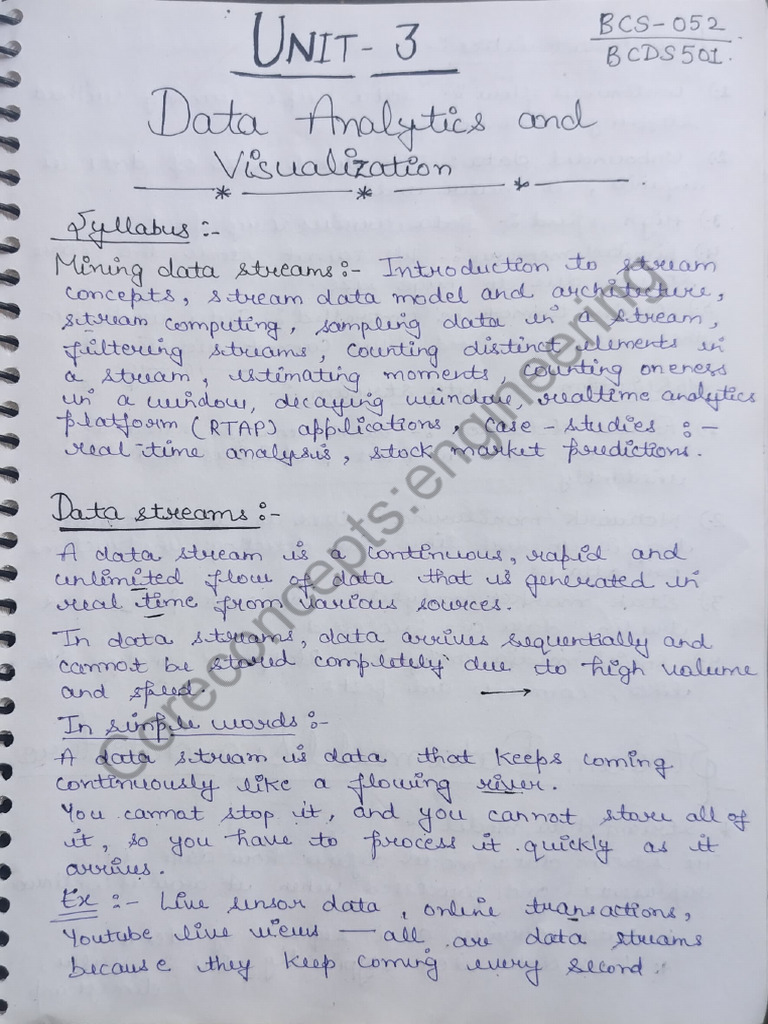 UNIT- 3
BCS-052
BCDS501.
Data Analytics and
Visualization
Syllabus :-
Mining data streams:- Introduction to stream
concepts, stream data model and architecture,
stream computing, sampling data in a stream,
filtering streams, counting distinct elements in
a stream, estimating moments, counting oneness
in a window, decaying window, realtime analytics
platform (RTAP) applications, case-studies :-
real time analysis, stock market predictions.
Data streams:-
A data stream is a continuous, rapid and
unlimited flow of data that is generated in
real time from various sources.
In data streams, data arrives sequentially and
cannot be stored completely due to high volume
and speed. →
In simple words:-
A data stream is data that keeps coming
continuously like a flowing river.
You cannot stop it, and you cannot store all of
it, so you have to process it quickly as it
arrives.
Ex :- Live sensor data, online transactions,
Youtube live views — all are data streams
because they keep coming every second.
Coreconcepts:engineering